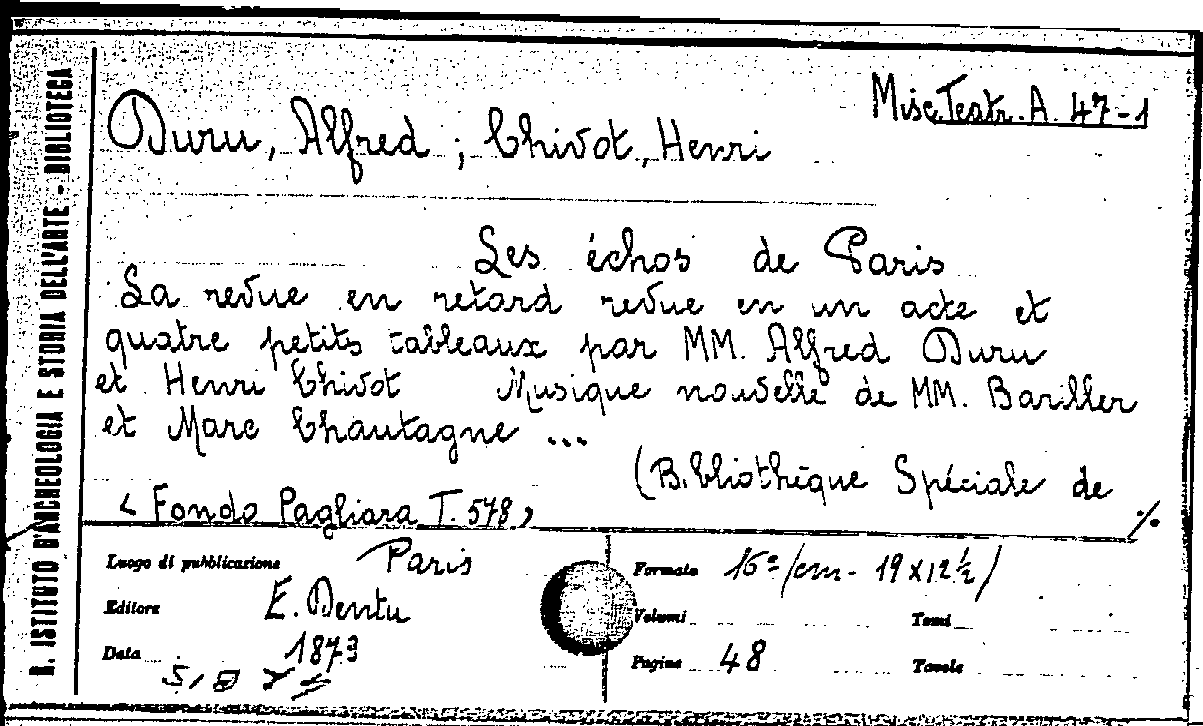 R. ISTITUTO D'ARCHEOLOGIA E STORIA DELL'ARTE - BIBLIOTECA
Misc. Teatr. A. 47-1
Duru, Alfred ; Chivot, Henri
Les échos de Paris
La revue en retard revue en un acte et
quatre petits tableaux par MM. Alfred Duru
et Henri Chivot Musique nouvelle de MM. Bariller
et Marc Chautagne ...
(Bibliothèque Spéciale de
< Fondo Pagliara T. 578 >
./.
Luogo di pubblicazione Paris
Editore E. Dentu
Data 1873
Formato 16º /cm - 19 x 12 ½ /
Volumi Tomi
Pagine 48 Tavole